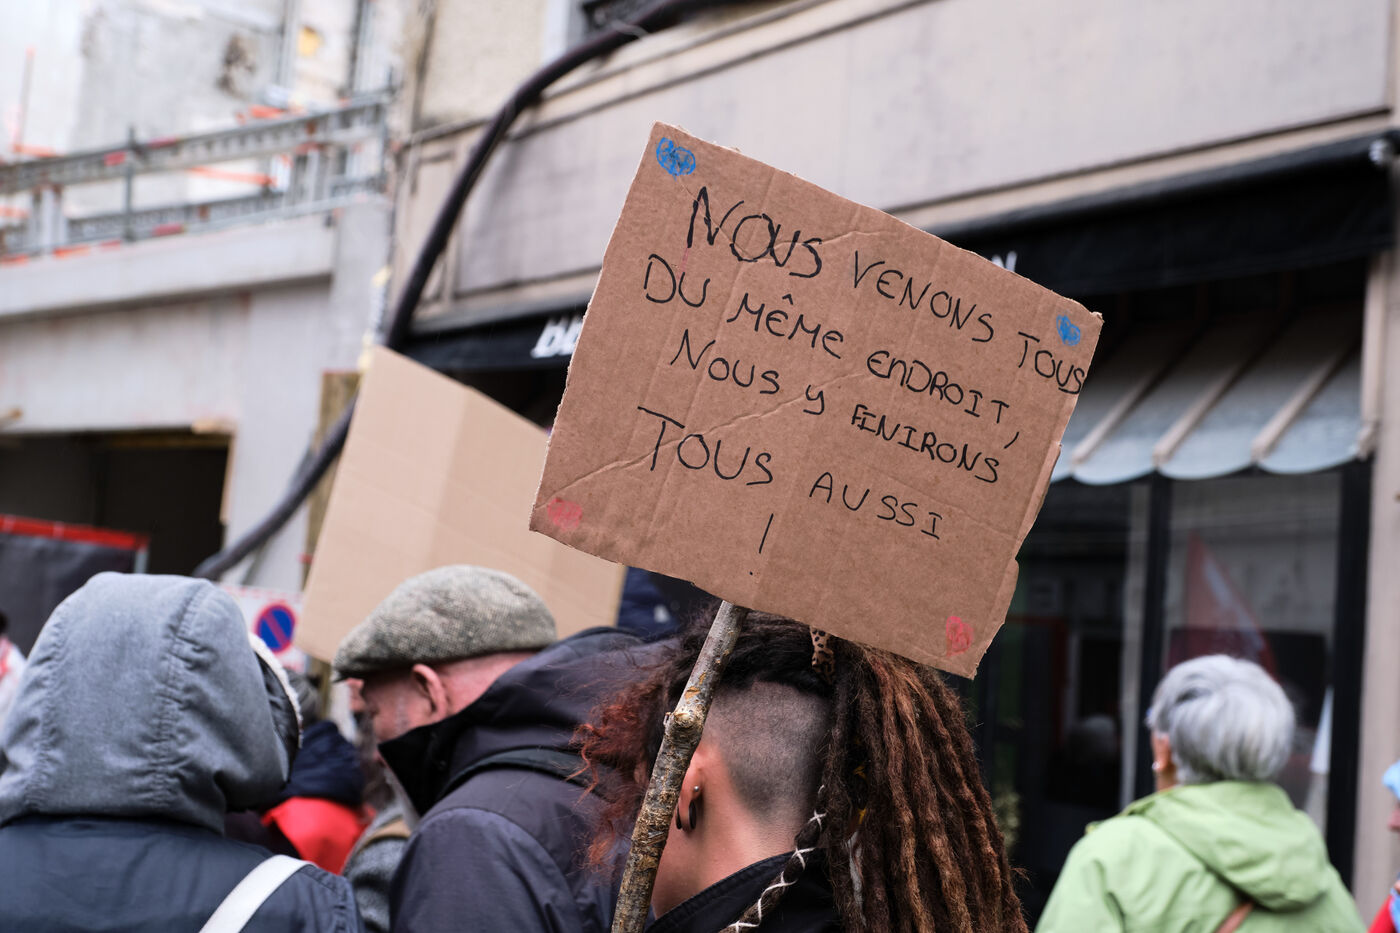 NOUS VENONS TOUS
DU MÊME ENDROIT,
NOUS Y FINIRONS
TOUS AUSSI
!